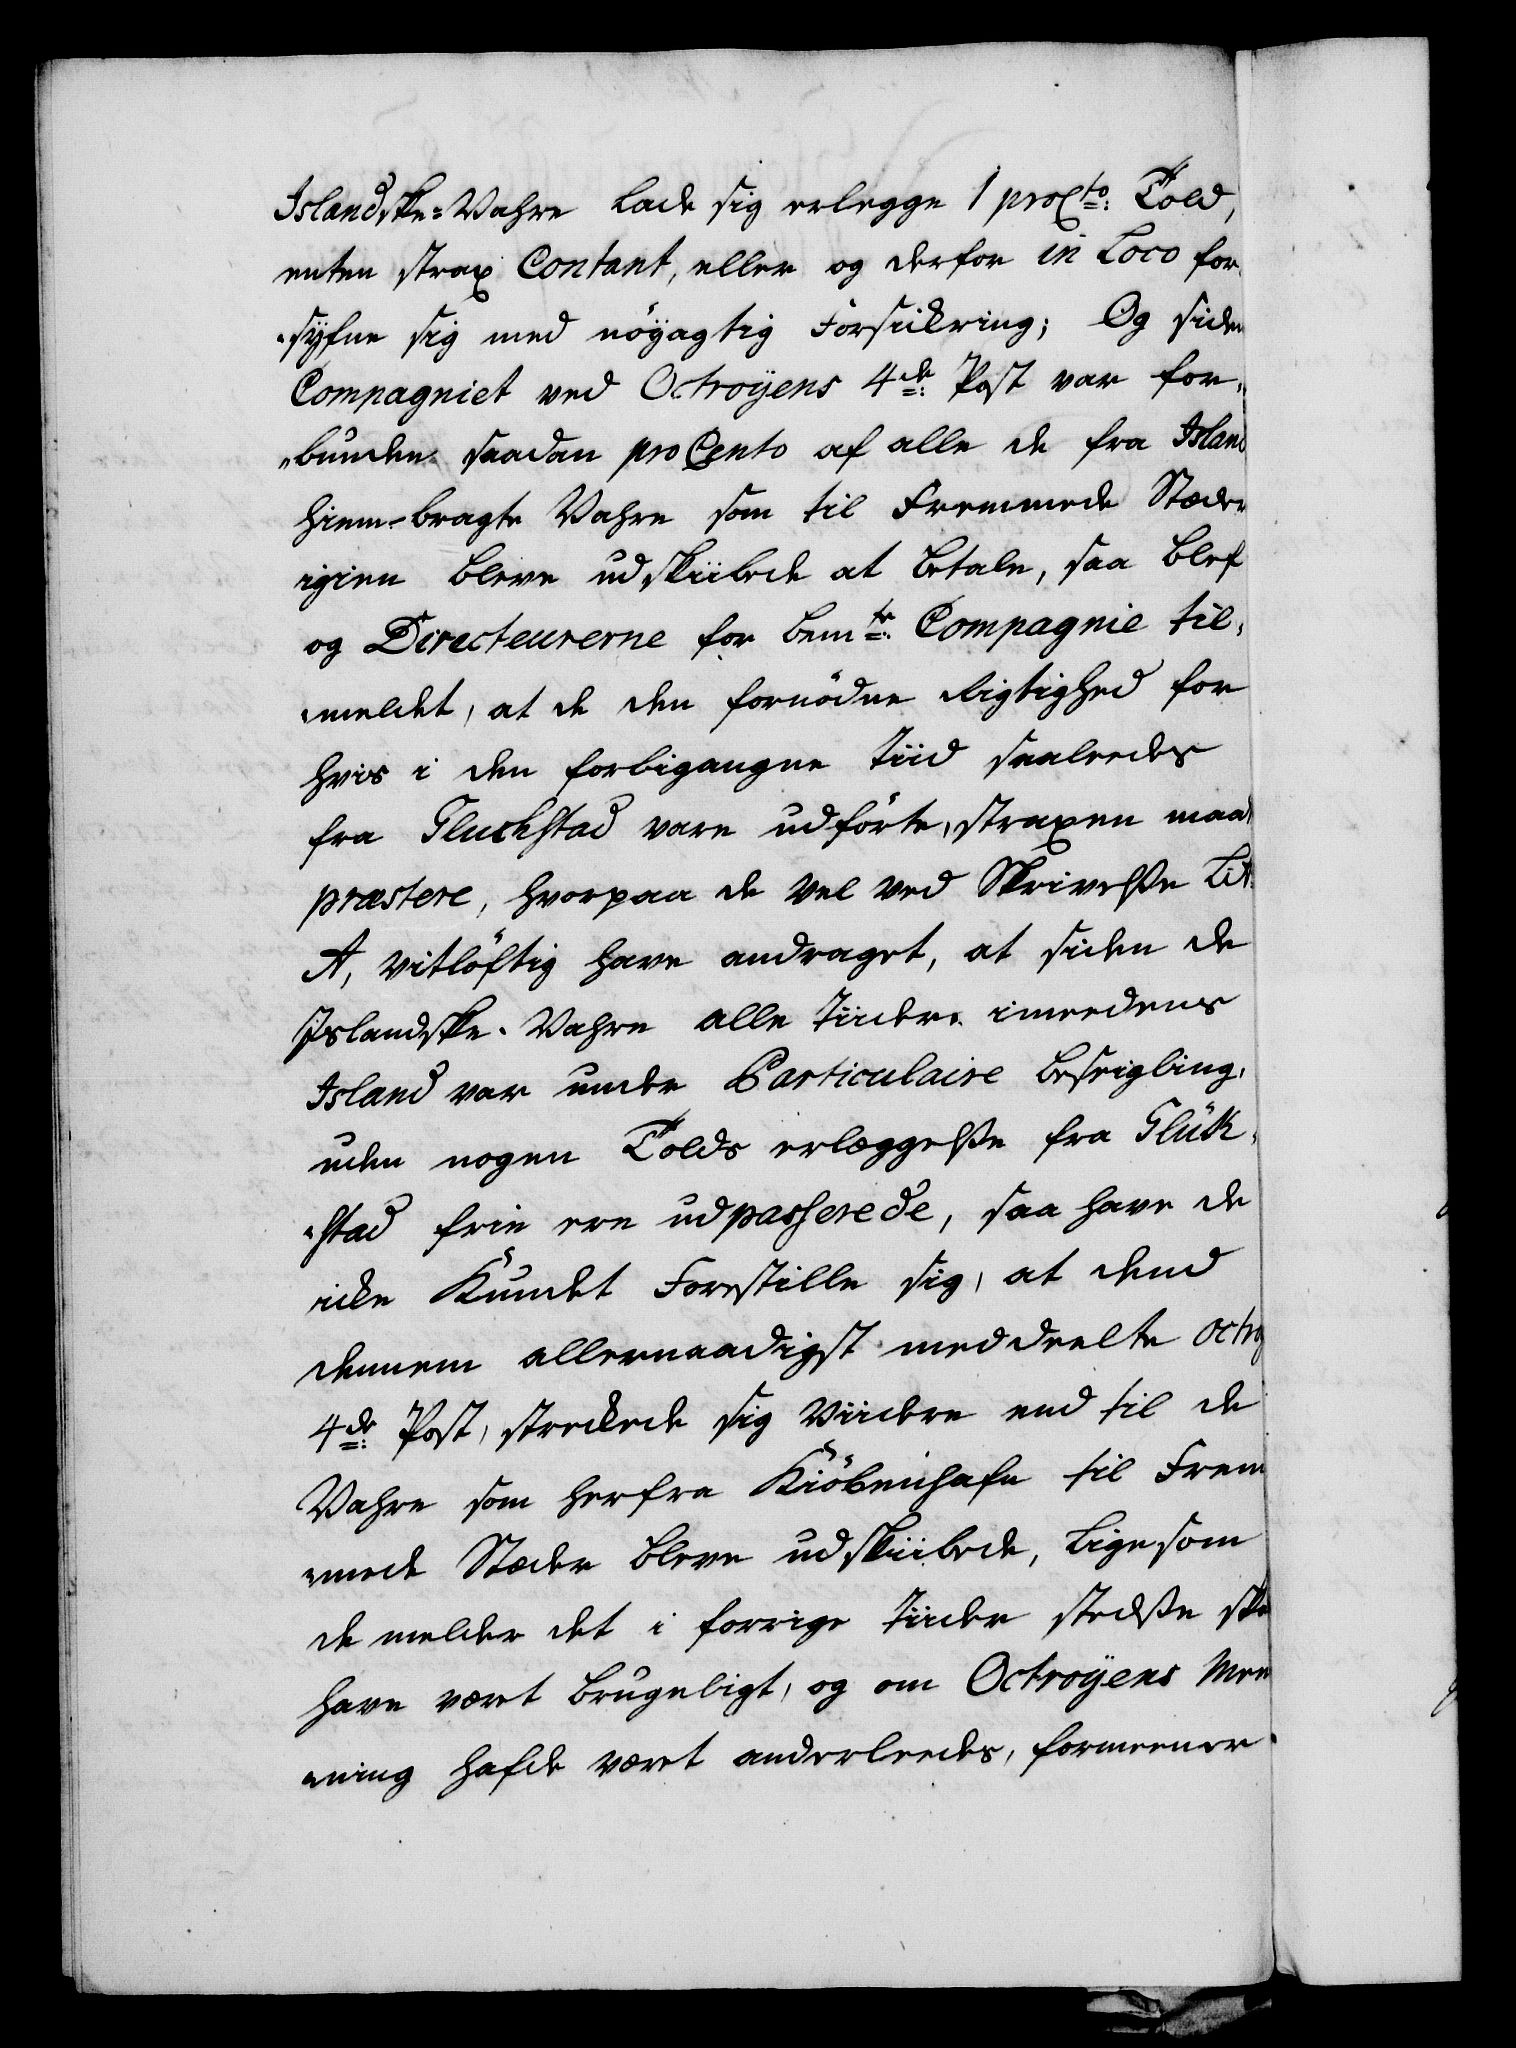 Islandske-Vahre lade sig erlegge 1 proCto: Told,
enten strax Contant, eller og derfor in Loco for-
-syfne sig med nöyagtig Forsickring; Og siden
Compagniet ved Octroyens 4de: Post var for-
-bunden saadan pro Cento af alle de fra Island
hiem-bragte Vahre som til Fremmede Stæder
igien bleve udskiibede at betale, saa blef
og Directeurerne for bemte: Compagnie til-
-meldet, at de den fornödne Rigtighed for
hvis i den forbigangne Tiid saaleedes
fra Gluckstad vare udförte, straxen maa
præstere, hvorpaa de vel ved Skrivelße Lit:
A, vitlöftig have andraget, at siden de
Islandske-Vahre alle Tiider imeedens
Island var under Particulaire beseigling,
uden nogen Tolds erlæggelße fra Glük-
-stad frie ere udpasserede, saa have de
icke Kundet Forestille sig, at dend
dennem allernaadigst meddeelte octroy
4de: Post, streckede sig viidere end til de
Vahre som herfra Kiöbenhafn til Frem
-mede Stæder bleve udskiibede, ligesom
de melder det i forrige Tiider stedße ska
have været brugeligt, og om Octroyens Mee
-ning hafde været anderleedes, formeener